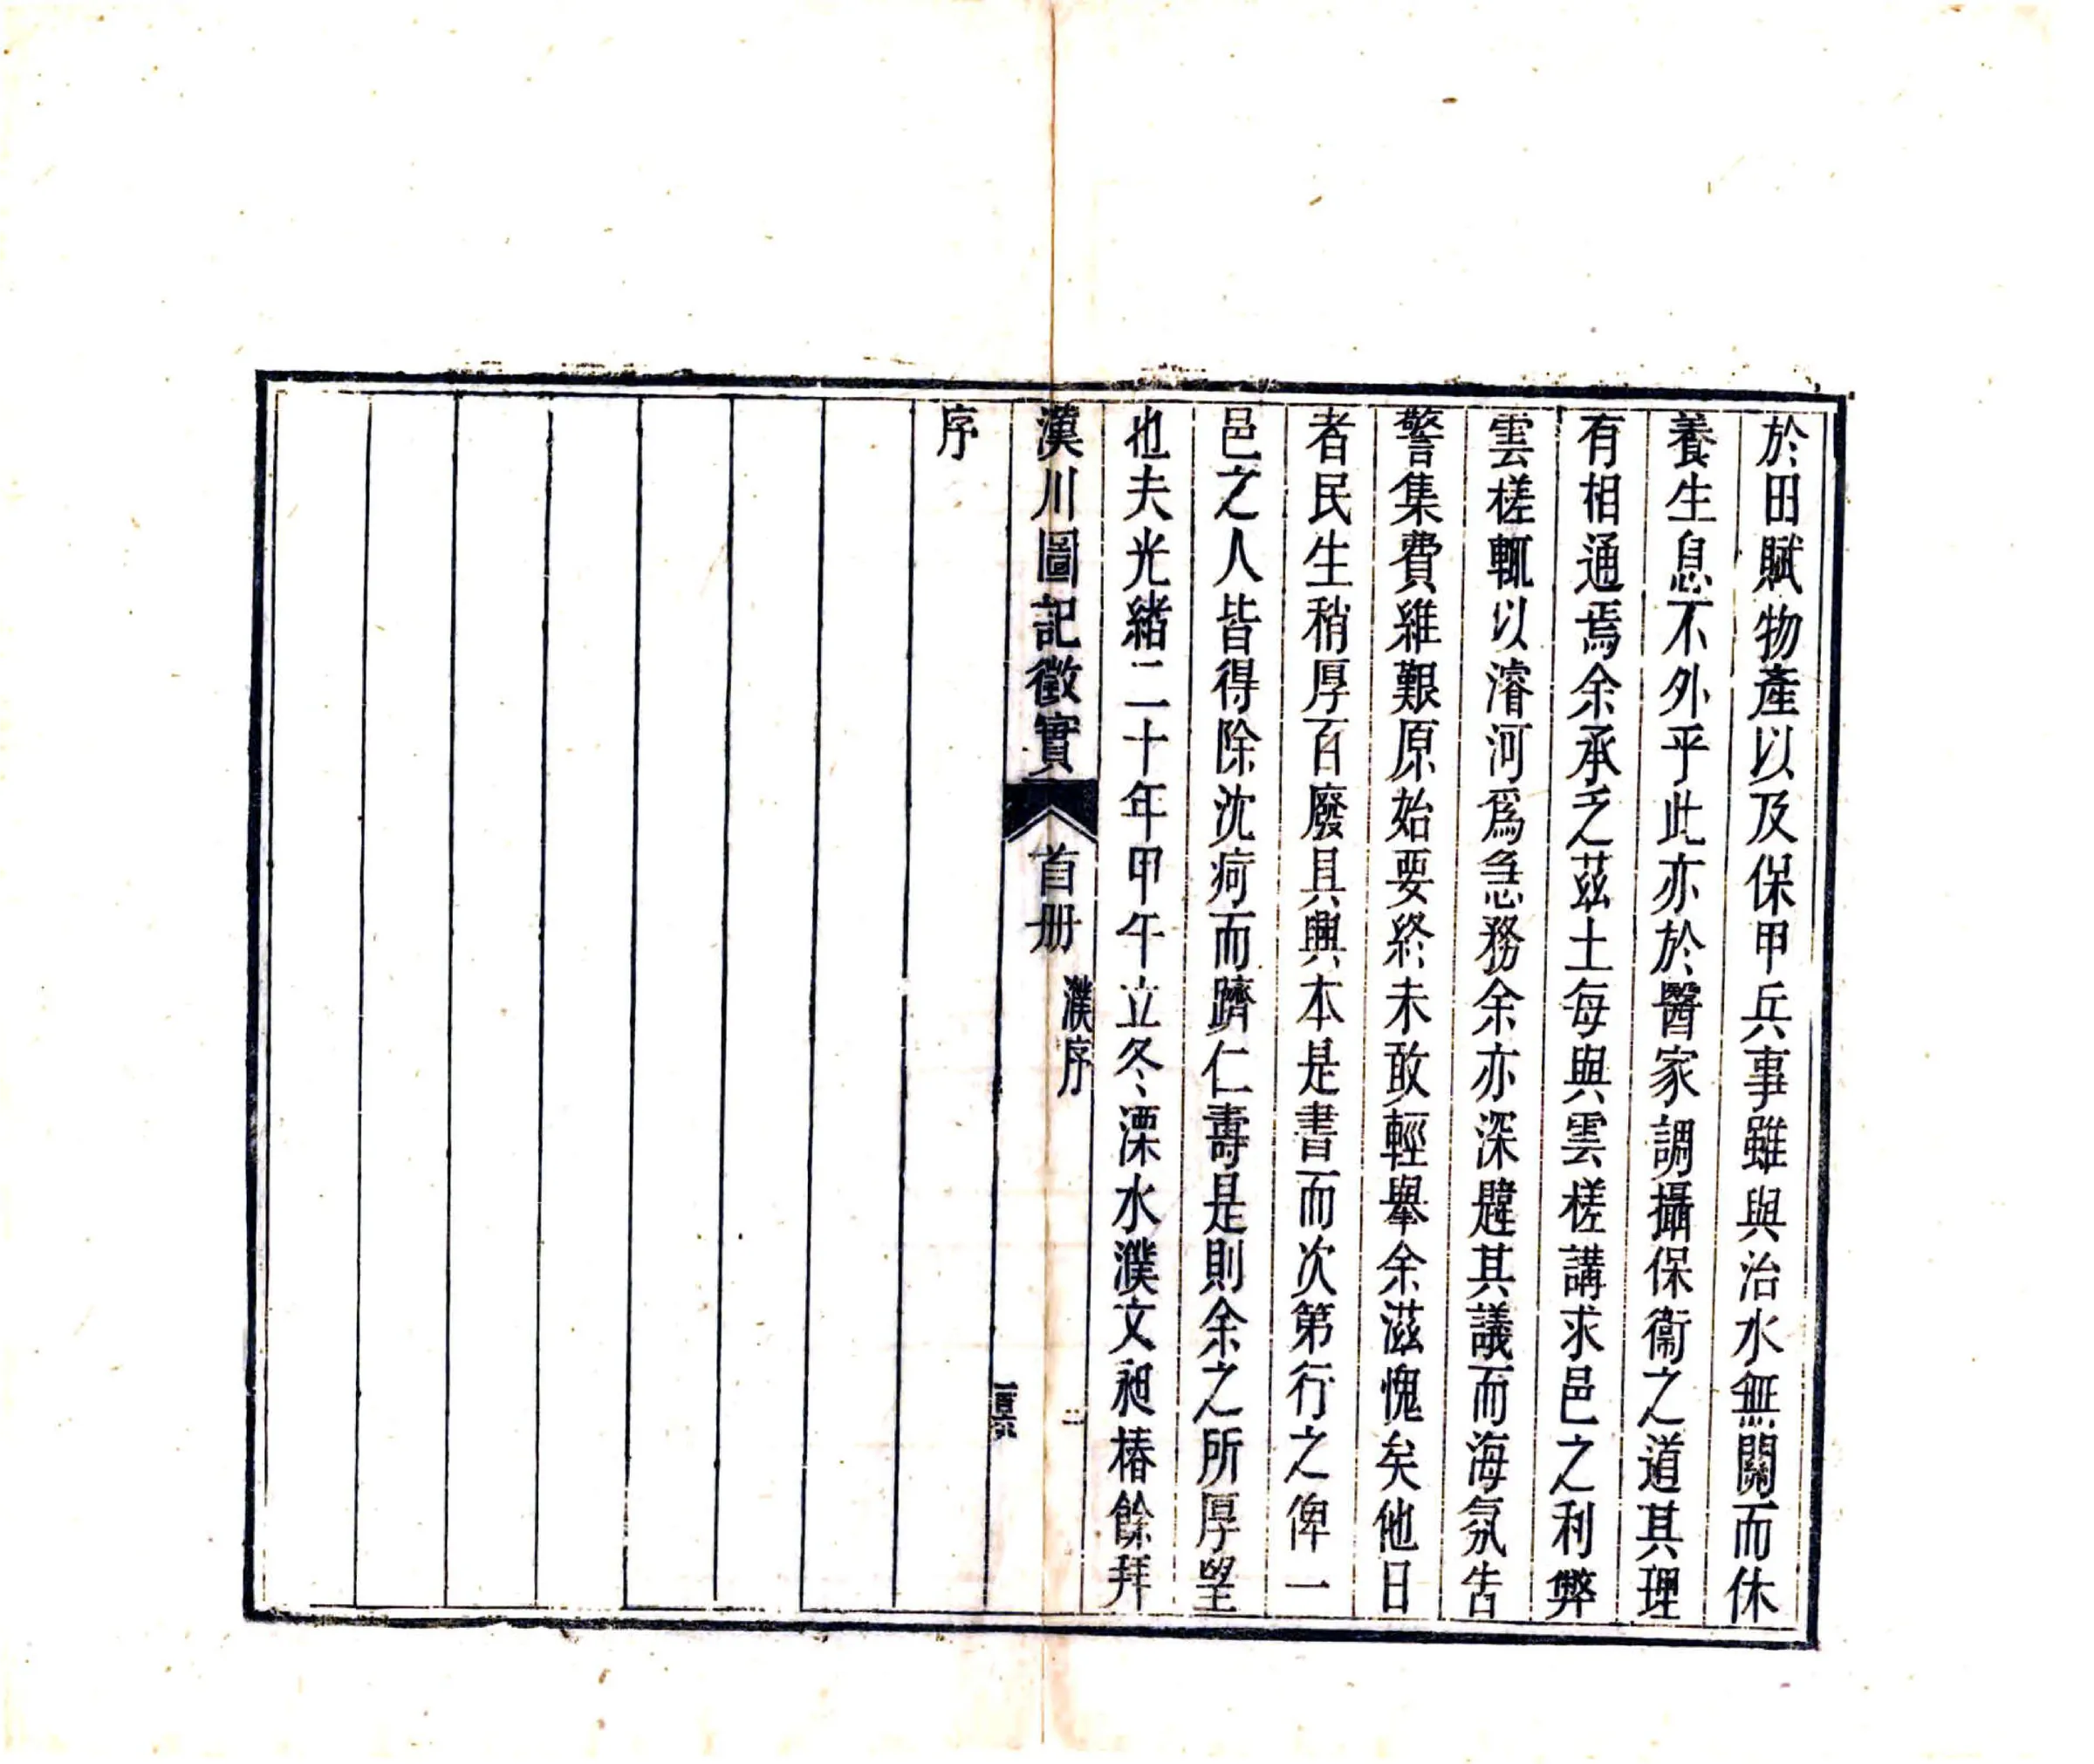 於田賦物產以及保甲兵事雖與治水無關而休
養生息不外乎此亦於醫家調攝保衞之道其理
有相通焉余承乏茲土每與雲槎講求邑之利弊
雲槎輒以濬河爲急務余亦深韙其議而海氛告
警集費維艱原始要終未敢輕舉余滋愧矣他日
者民生稍厚百廢具興本是書而次第行之俾一
邑之人皆得除沈疴而躋仁壽是則余之所厚望
也夫光緒二十年甲午立冬溧水濮文昶椿餘拜
漢川圖記徵實
首册
濮序
二
一百六
序